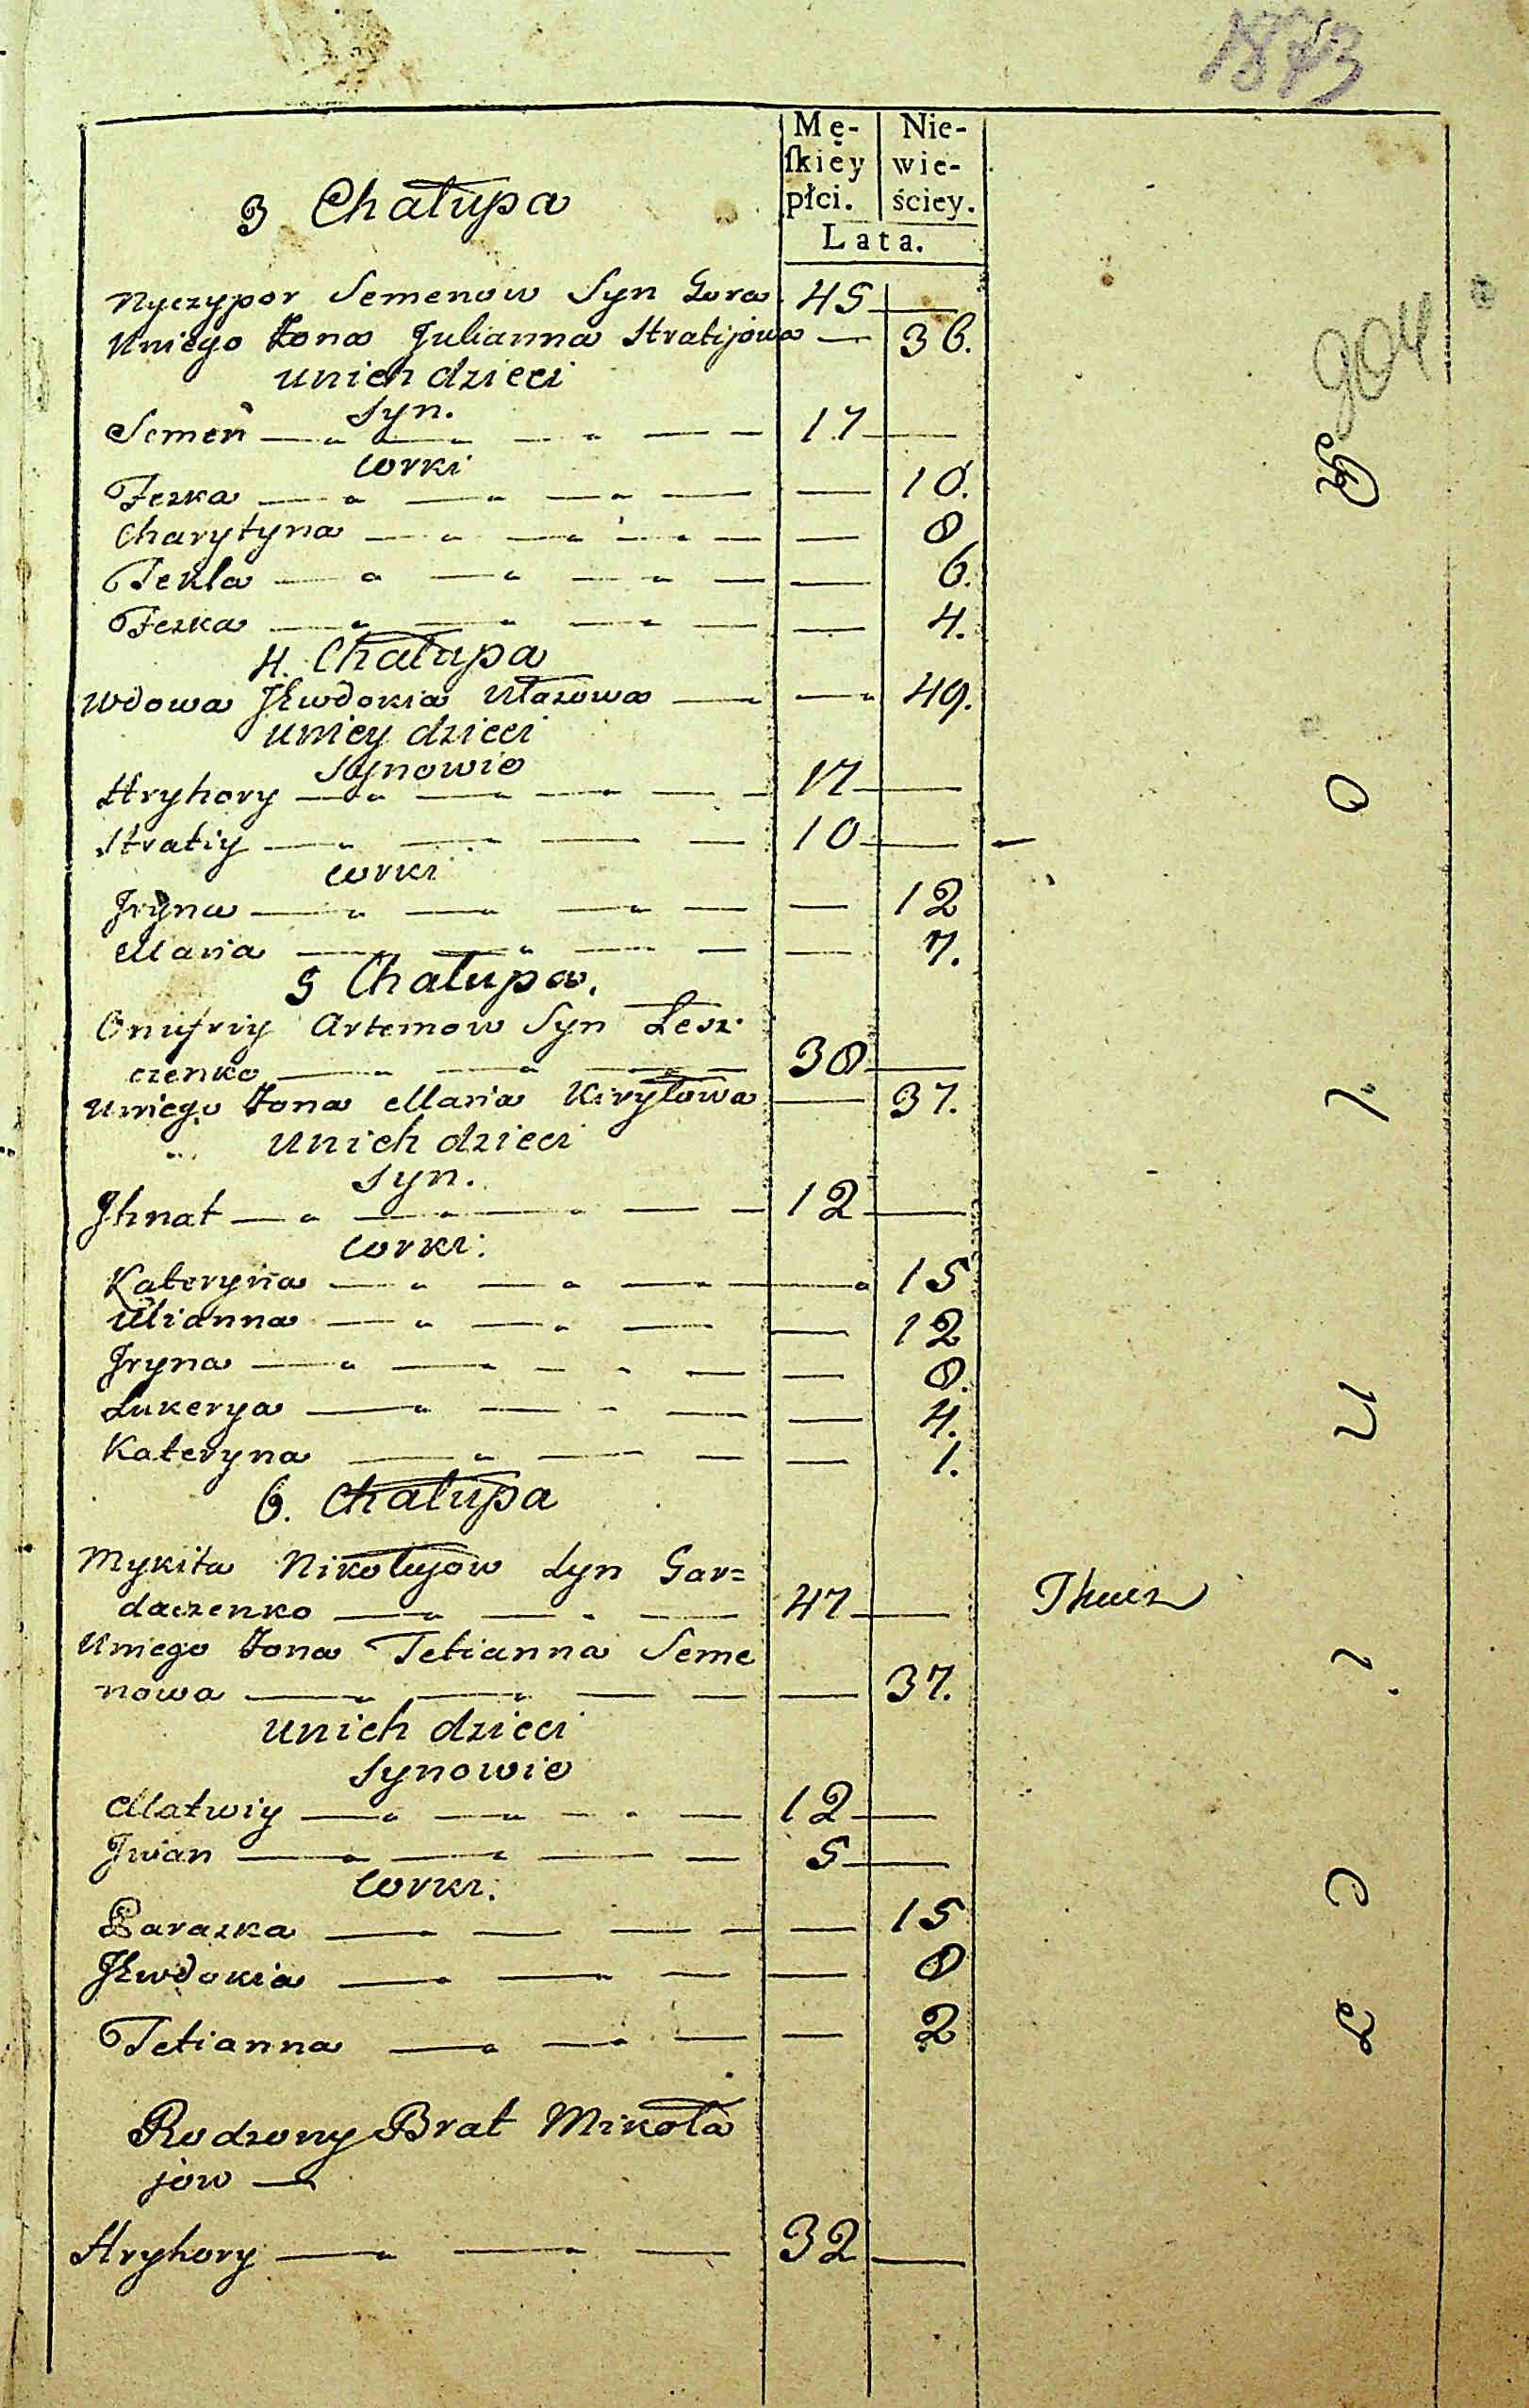 1873
Mę- Nie-
ſkiéy wie-
płci. ściey.
Lata.
3 Chałupa
Nyczypor Semenow Syn Gora 45 —
Uniego Żona Julianna Stratijowa — 36.
unich dzieci
Syn.
Semen — 17 —
Corki
Feska — 10.
Charytyna — 8
Tekla — 6.
Feska — 4.
4. Chałupa
Wdowa Jewdokia Ułasowa — 49.
uniey dzieci
Synowie
Hryhory — 17 —
Stratiy — 10 —
corki
Jryna — 12
Maria — 7.
5 Chałupa.
Onufriy Artemow Syn Lesz-
czenko — 38 —
Uniego Żona Maria Kiryłowa — 37.
Unich dzieci
Syn.
Jhnat — 12 —
Corki.
Kateryna — 15
Ulianna — 12
Jryna — 8.
Lukerya — 4.
Kateryna — 1.
6. Chałupa
Mykita Nikołayow Syn Gar=
daczenko — 47 — Tkacz
Uniego Żona Tetianna Seme
nowa — 37.
unich dzieci
Synowie
Matwiy — 12 —
Jwan — 5 —
Corki.
Paraska — 15
Jewdokia — 8
Tetianna — 2
Rodzony Brat Mikoła
jow —
Hryhory — 32 —
904